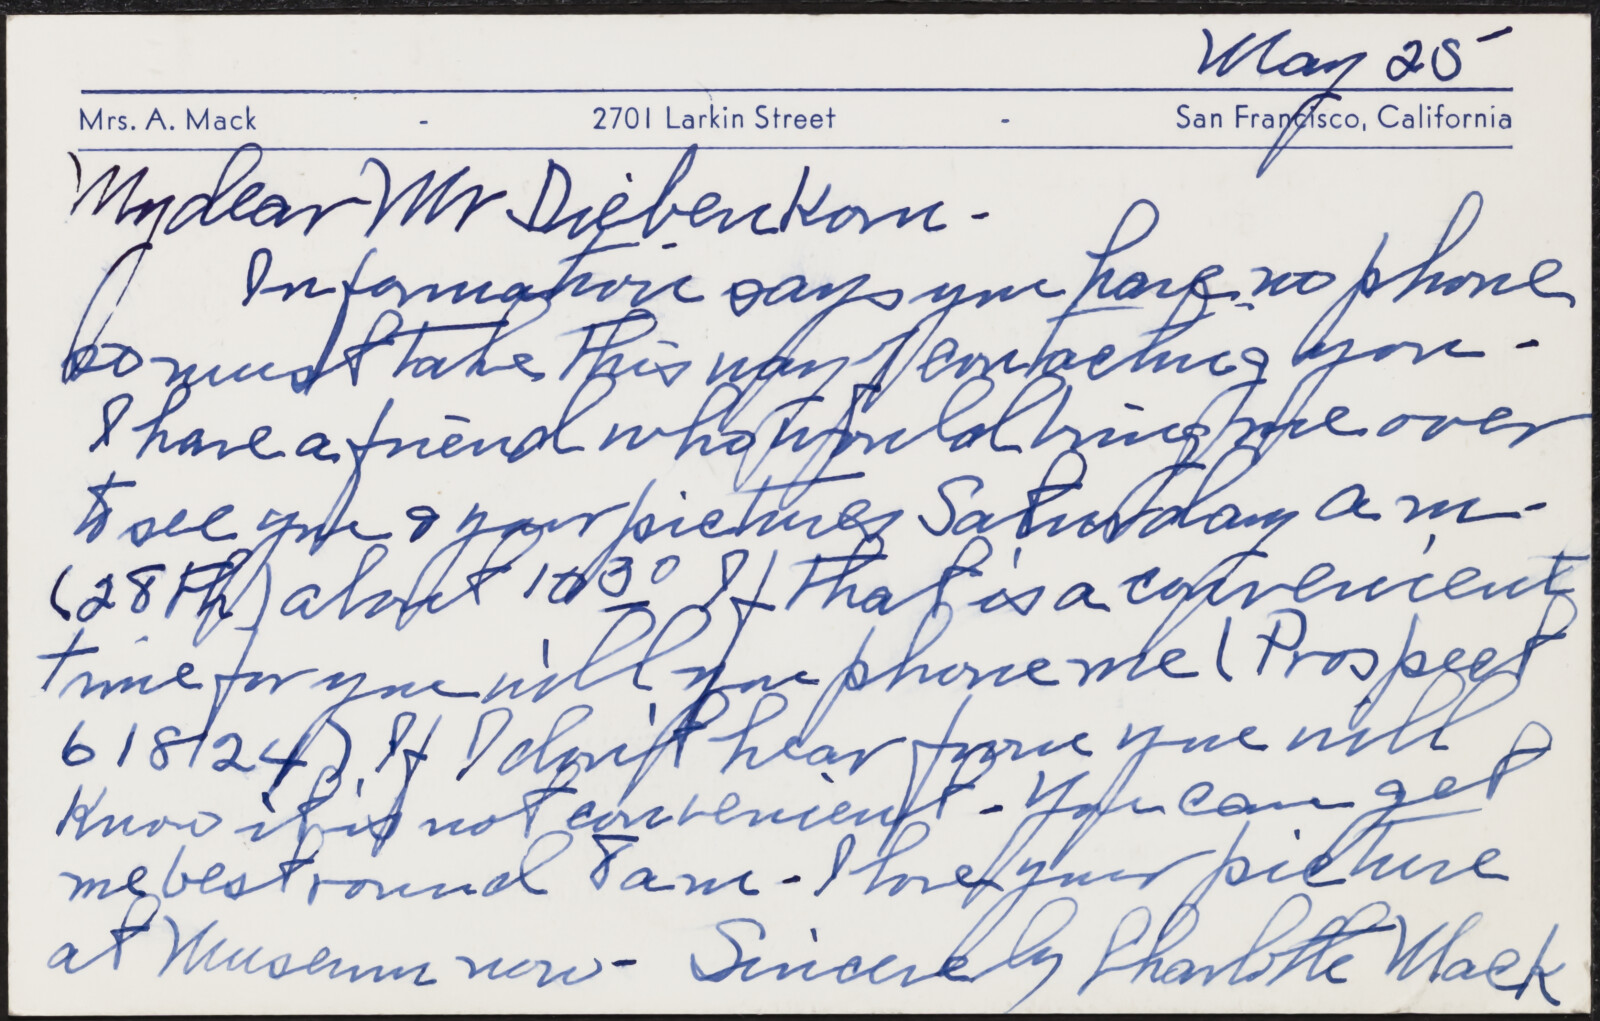 May 25
Mrs. A. Mack - 2701 Larkin Street - San Francisco, California
My dear Mr Diebenkorn -
Information says you have no phone
so must take this way of contacting you -
I have a friend who would bring me over
to see you & your pictures Saturday a.m. -
(28th) about 10 30 If that is a convenient
time for you will you phone me (Prospect
61824) If I don't hear from you will
know it is not convenient - You can get
me best round 8 am - I love your picture
at Museum now - Sincerely Charlotte Mack